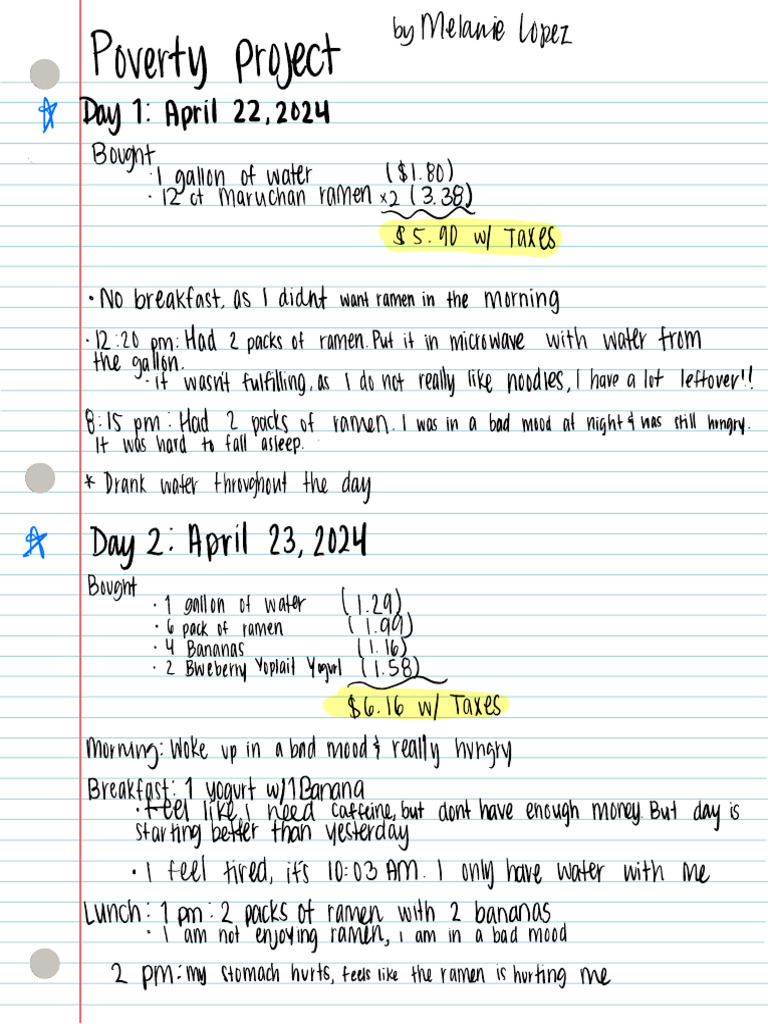 by Melanie Lopez
Poverty project
Day 1: April 22, 2024
Bought
· 1 gallon of water ($1.80)
· 12 ct maruchan ramen x2 (3.38)
$5.90 w/ Taxes
· No breakfast, as I didnt want ramen in the morning
· 12:20 pm: Had 2 packs of ramen. Put it in microwave with water from
the gallon.
· it wasn't fulfilling, as I do not really like noodles, I have a lot leftover!!
8:15 pm: Had 2 packs of ramen. I was in a bad mood at night & was still hungry.
It was hard to fall asleep.
* Drank water throughout the day
Day 2: April 23, 2024
Bought
· 1 gallon of water (1.29)
· 6 pack of ramen (1.99)
· 4 Bananas (1.16)
· 2 Blueberry Yoplait Yogurt (1.58)
$6.16 w/ Taxes
Morning: Woke up in a bad mood & really hungry
Breakfast: 1 yogurt w/1 Banana
· Feel like I need caffeine, but dont have enough money. But day is
starting better than yesterday
· I feel tired, it's 10:03 AM. I only have water with me
Lunch: 1 pm: 2 packs of ramen with 2 bananas
· I am not enjoying ramen, i am in a bad mood
2 pm: my stomach hurts, feels like the ramen is hurting me